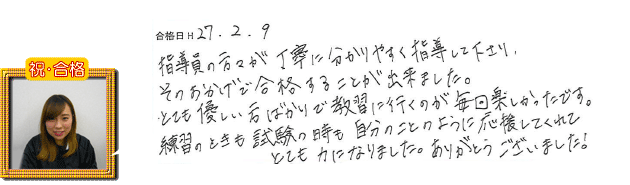 合格日 H 27.2.9
祝・合格
指導員の方々が丁寧に分かりやすく指導して下さり、
そのおかげで合格することが出来ました。
とても優しい方ばかりで教習に行くのが毎回楽しかったです。
練習のときも試験の時も自分のことのように応援してくれて
とても力になりました。ありがとうございました!